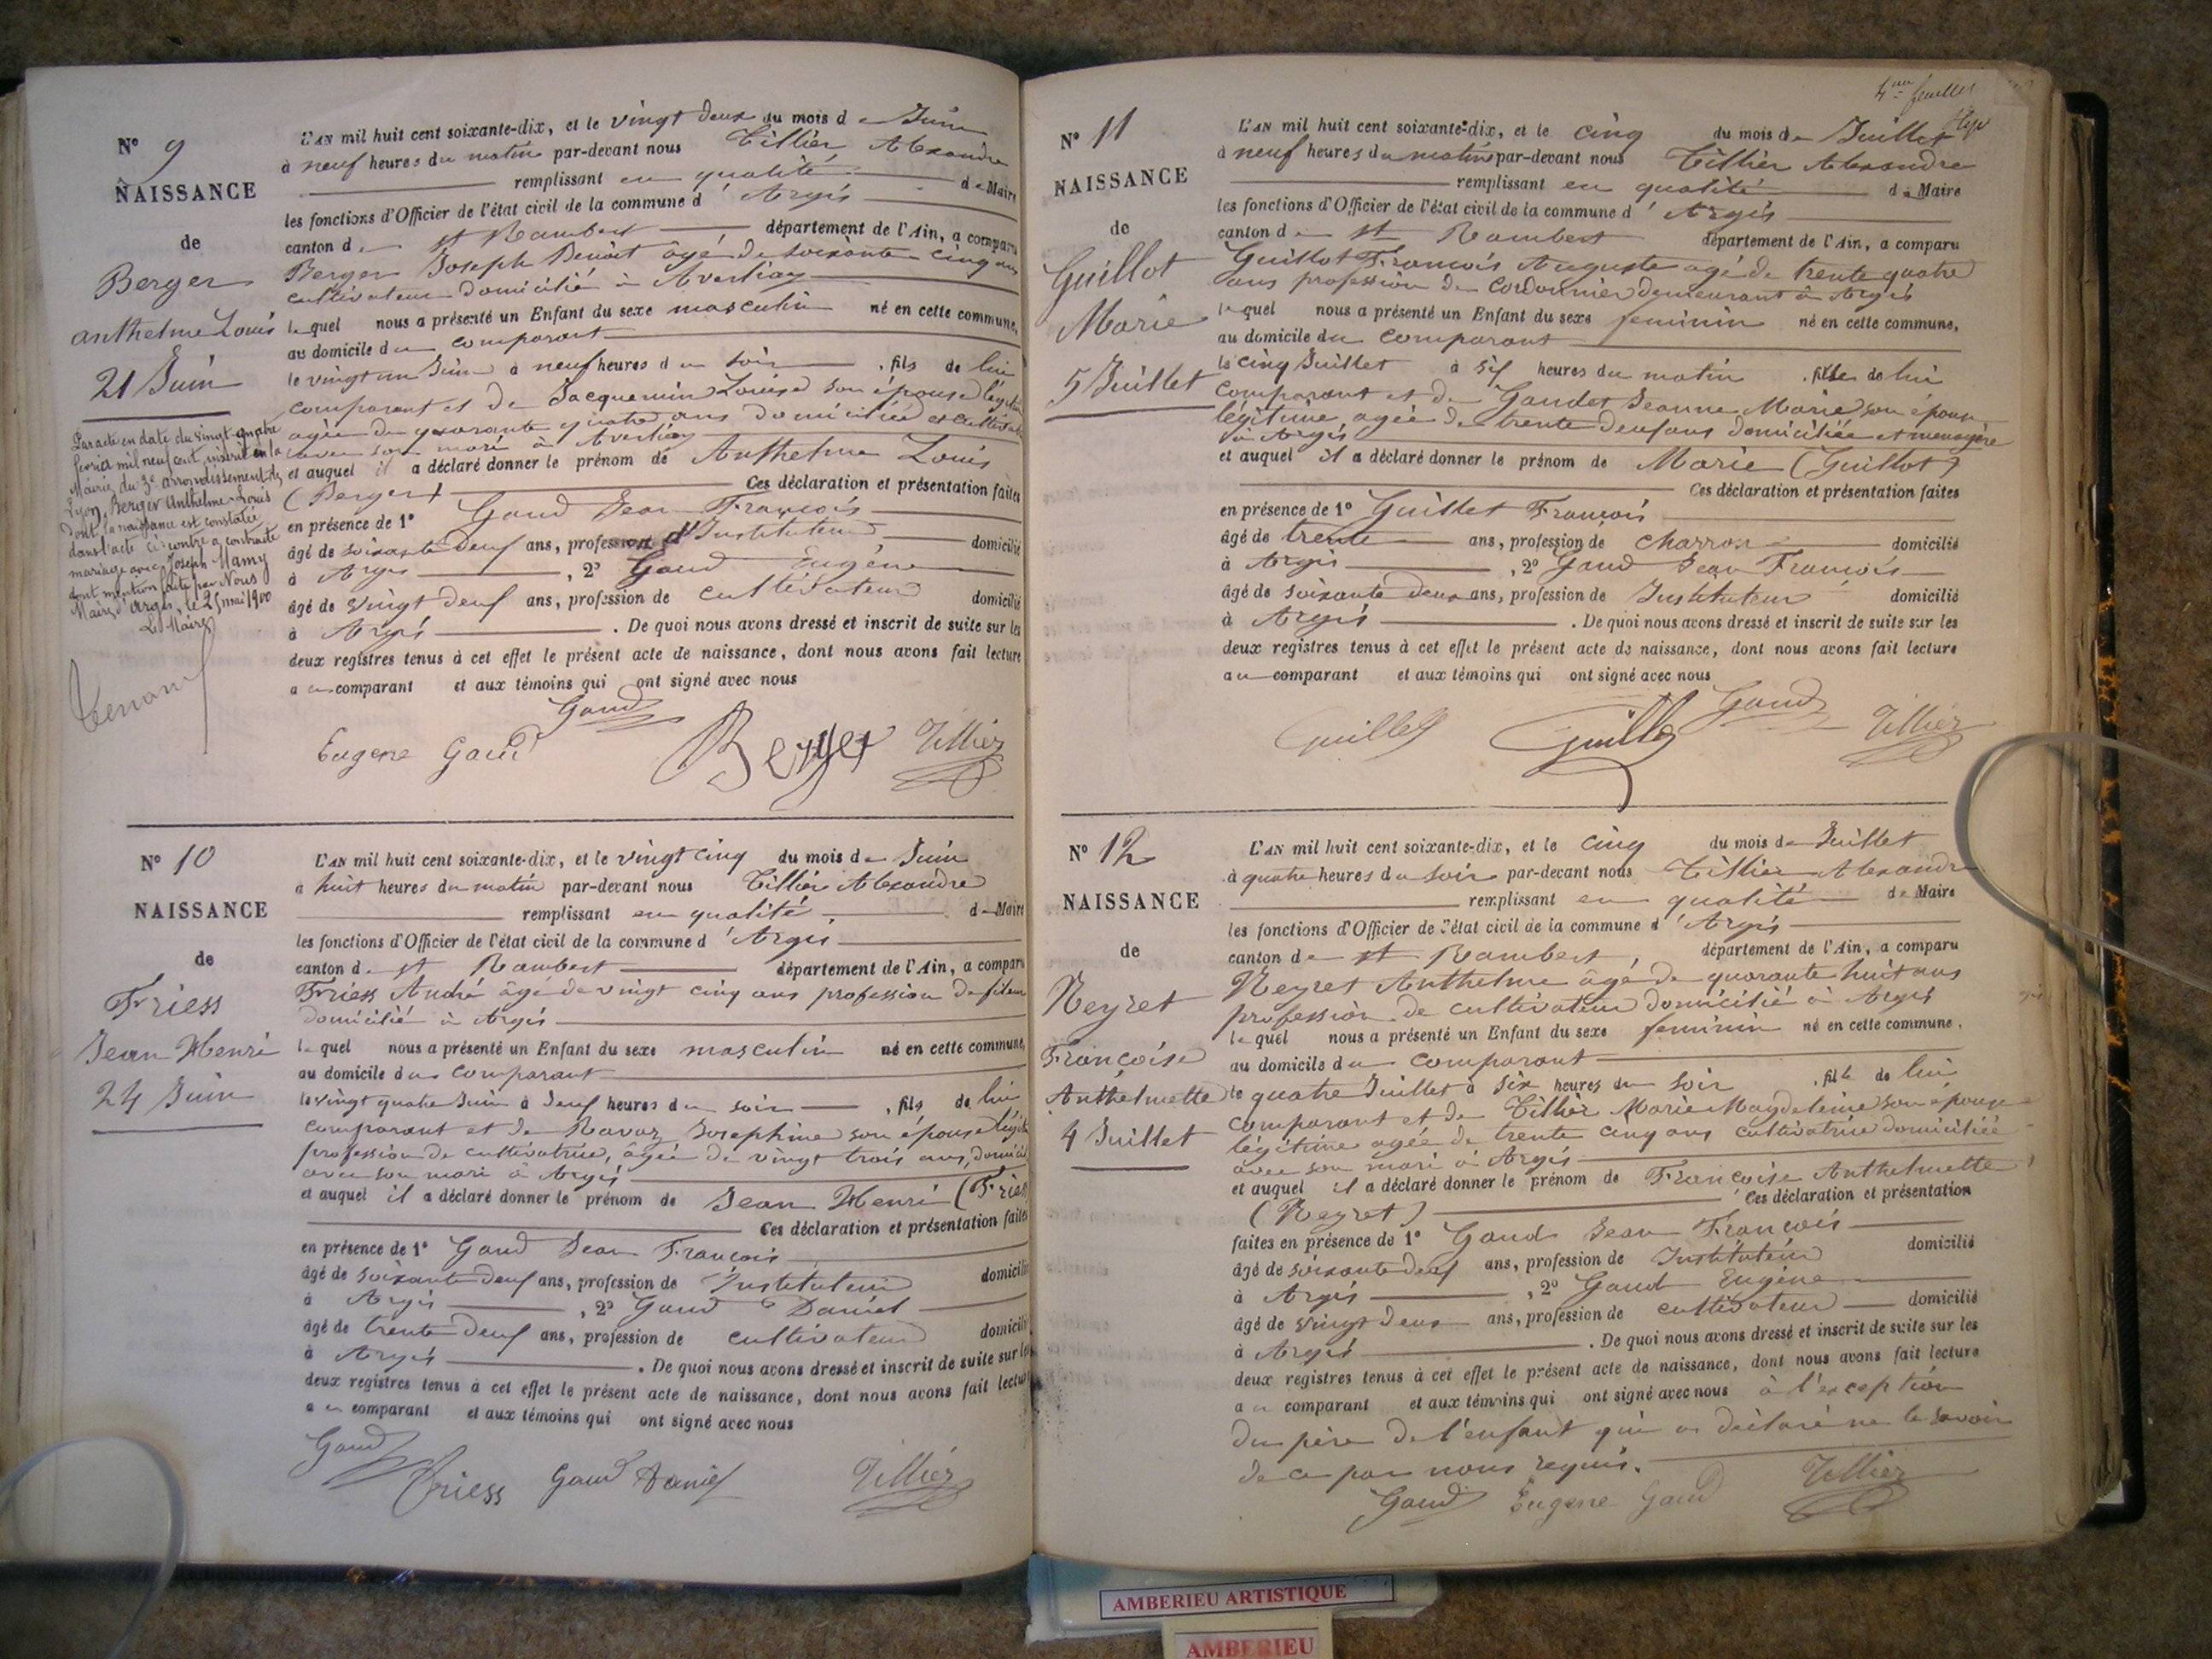 N° 9
NAISSANCE
de
Berger
Anthelme Louis
21 Juin
Par acte en date du vingt-quatre
février mil neuf cent, inscrit en la
Mairie du 3e arrondissement de
Lyon, Berger Anthelme-Louis
dont la naissance est constatée
dans l'acte ci-contre a contracté
mariage avec Joseph Mamy
dont mention faite par Nous
Maire d'Argis, le 25 mai 1900
Le Maire
L'AN mil huit cent soixante-dix, et le vingt deux du mois de Juin
à neuf heures du matin par-devant nous Tillier Alexandre
remplissant en qualité de Maire
les fonctions d'Officier de l'état civil de la commune d'Argis
canton de St Rambert département de l'Ain, a comparu
Berger Joseph Benoit âgé de soixante cinq ans
cultivateur domicilié à Averliaz
lequel nous a présenté un Enfant du sexe masculin né en cette commune,
au domicile du comparant
le vingt un Juin à neuf heures du soir, fils de lui
comparant et de Jacquemin Louise son épouse légitime
agée de quarante quatre ans domiciliée et cultivatrice
avec son mari à Averliaz
et auquel il a déclaré donner le prénom de Anthelme Louis
(Berger) Ces déclaration et présentation faites
en présence de 1° Gaud Jean François
âgé de soixante deux ans, profession d'Instituteur domicilié
à Argis, 2° Gaud Eugène
âgé de vingt deux ans, profession de cultivateur domicilié
à Argis. De quoi nous avons dressé et inscrit de suite sur les
deux registres tenus à cet effet le présent acte de naissance, dont nous avons fait lecture
au comparant et aux témoins qui ont signé avec nous
Gaud
Eugene Gaud Berger Tillier
N° 10
NAISSANCE
de
Friess
Jean Henri
24 Juin
L'AN mil huit cent soixante-dix, et le vingt cinq du mois de Juin
à huit heures du matin par-devant nous Tillier Alexandre
remplissant en qualité de Maire
les fonctions d'Officier de l'état civil de la commune d'Argis
canton de St Rambert département de l'Ain, a comparu
Friess André âgé de vingt cinq ans profession de fileur
domicilié à Argis
lequel nous a présenté un Enfant du sexe masculin né en cette commune,
au domicile du comparant
le vingt quatre Juin à deux heures du soir, fils de lui
comparant et de Ravaz Josephine son épouse légitime
profession de cultivatrice, âgée de vingt trois ans, domiciliée
avec son mari à Argis
et auquel il a déclaré donner le prénom de Jean Henri (Friess
Ces déclaration et présentation faites
en présence de 1° Gaud Jean François
âgé de soixante deux ans, profession de Instituteur domicilié
à Argis, 2° Gaud Daniel
âgé de trente deux ans, profession de cultivateur domicilié
à Argis. De quoi nous avons dressé et inscrit de suite sur les
deux registres tenus à cet effet le présent acte de naissance, dont nous avons fait lecture
au comparant et aux témoins qui ont signé avec nous
Gaud
Friess Gaud Daniel Tillier
4me feuillet
N° 11
NAISSANCE
de
Guillot
Marie
5 Juillet
L'AN mil huit cent soixante-dix, et le cinq du mois de Juillet
à neuf heures du matin par-devant nous Tillier Alexandre
remplissant en qualité de Maire
les fonctions d'Officier de l'état civil de la commune d'Argis
canton de St Rambert département de l'Ain, a comparu
Guillot François Auguste agé de trente quatre
ans profession de cordonnier demeurant à Argis
lequel nous a présenté un Enfant du sexe feminin né en cette commune,
au domicile du comparant
le cinq Juillet à six heures du matin, fille de lui
comparant et de Gaudet Jeanne Marie son épouse
légitime, agée de trente deux ans domiciliée et menagère
à Argis
et auquel il a déclaré donner le prénom de Marie (Guillot)
Ces déclaration et présentation faites
en présence de 1° Guillet François
âgé de trente ans, profession de charron domicilié
à Argis, 2° Gaud Jean François
âgé de soixante deux ans, profession de Instituteur domicilié
à Argis. De quoi nous avons dressé et inscrit de suite sur les
deux registres tenus à cet effet le présent acte de naissance, dont nous avons fait lecture
au comparant et aux témoins qui ont signé avec nous
Guillet Guillot Gaud Tillier
N° 12
NAISSANCE
de
Neyret
Françoise
Anthelmette
4 Juillet
L'AN mil huit cent soixante-dix, et le cinq du mois de Juillet
à quatre heures du soir par-devant nous Tillier Alexandre
remplissant en qualité de Maire
les fonctions d'Officier de l'état civil de la commune d'Argis
canton de St Rambert, département de l'Ain, a comparu
Neyret Anthelme âgé de quarante huit ans
profession de cultivateur domicilié à Argis
lequel nous a présenté un Enfant du sexe feminin né en cette commune,
au domicile du comparant
le quatre Juillet à six heures du soir, fille de lui
comparant et de Tillier Marie Magdeleine son épouse
légitime agée de trente cinq ans cultivatrice domiciliée
avec son mari à Argis
et auquel il a déclaré donner le prénom de Françoise Anthelmette
(Neyret) Ces déclaration et présentation
faites en présence de 1° Gaud Jean François
âgé de soixante deux ans, profession de Instituteur domicilié
à Argis, 2° Gaud Eugène
âgé de vingt deux ans, profession de cultivateur domicilié
à Argis. De quoi nous avons dressé et inscrit de suite sur les
deux registres tenus à cet effet le présent acte de naissance, dont nous avons fait lecture
au comparant et aux témoins qui ont signé avec nous à l'exception
du père de l'enfant qui a déclaré ne le savoir
de ce par nous requis.
Gaud Eugene Gaud Tillier
AMBERIEU ARTISTIQUE
AMBERIEU